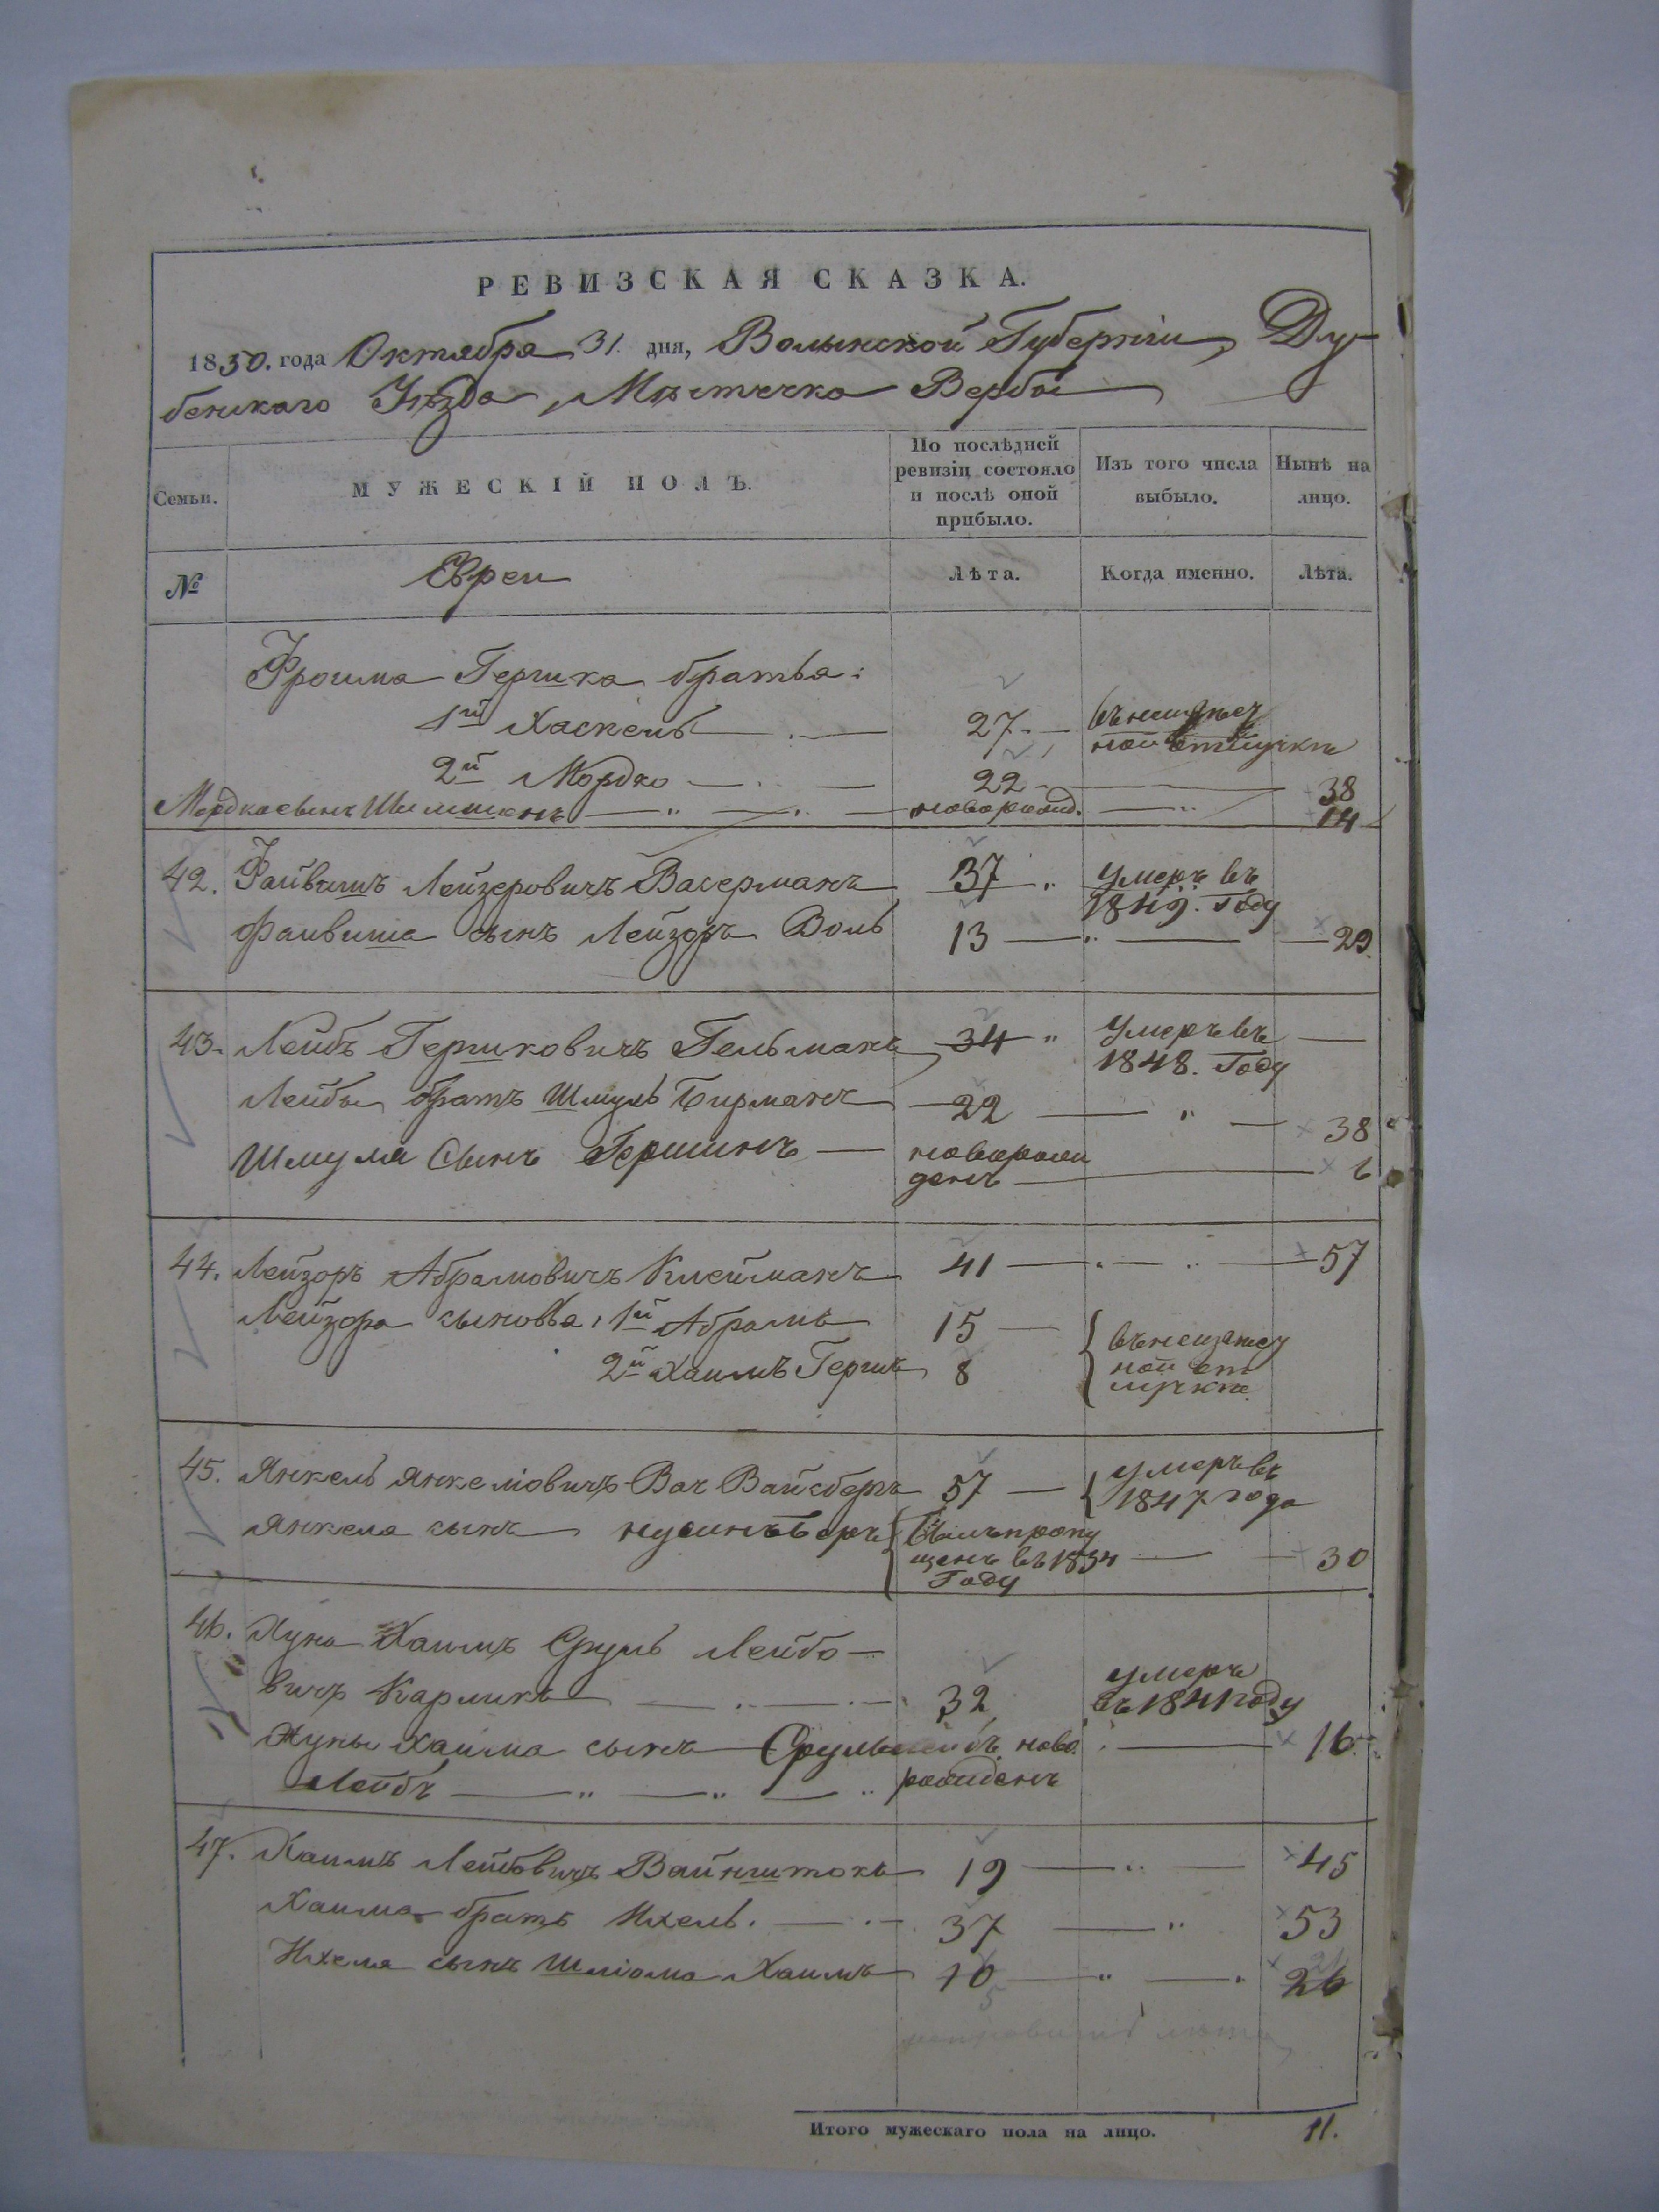 РЕВИЗСКАЯ СКАЗКА.
1850. года Октября 31. дня, Волынской Губерніи, Ду-
бенскаго Уѣзда, Мѣстечка Вербы
Семьи.
МУЖЕСКІЙ ПОЛЪ.
По послѣдней
ревизіи состояло
и послѣ оной
прибыло.
Изъ того числа
выбыло.
Нынѣ на
лицо.
№
Евреи
Лѣта.
Когда именно.
Лѣта.
Фроима Гершка братья:
1й Хаскель 27 въ неизвѣст
ной отлучкѣ
2й Мордко 22 38
Мордка сынъ Шимшонъ новорожд. 14
42. Файвишъ Лейзеровичъ Васерманъ 37 умеръ въ
1849. году
Файвиша сынъ Лейзоръ Воль 13 29
43. Лейбъ Гершковичъ Гельманъ 34 умеръ въ
1848. Году
Лейбы братъ Шмуль Бирманъ 22 38
Шмуля Сынъ Гершинъ новорож
денъ 6
44. Лейзоръ Абрамовичъ Клейманъ 41 57
Лейзора сыновья, 1й Абрамъ 15 въ неизвѣст
ной от
лучкѣ.
2й Хаимъ Гершъ 8
45. Янкель Янкеліовичъ Вач Вайсберъ 57 умеръ въ
1847 года
Янкеля сынъ Нусинъ Беръ Былъ пропу
щенъ въ 1834 30
Году
46. Хуна Хаимъ Сруль Лейбо-
вичъ Карликъ 32 умеръ
въ 1841 году
Хуны Хаима сынъ Сруль Лейбъ ново 16
Лейбъ рожденъ
47. Хаимъ Лейбовичъ Вайнштокъ 19 45
Хаима братъ Ихель. 37 53
Ихеля сынъ Шліома Хаимъ 10 26
5
Итого мужескаго пола на лицо. 11.